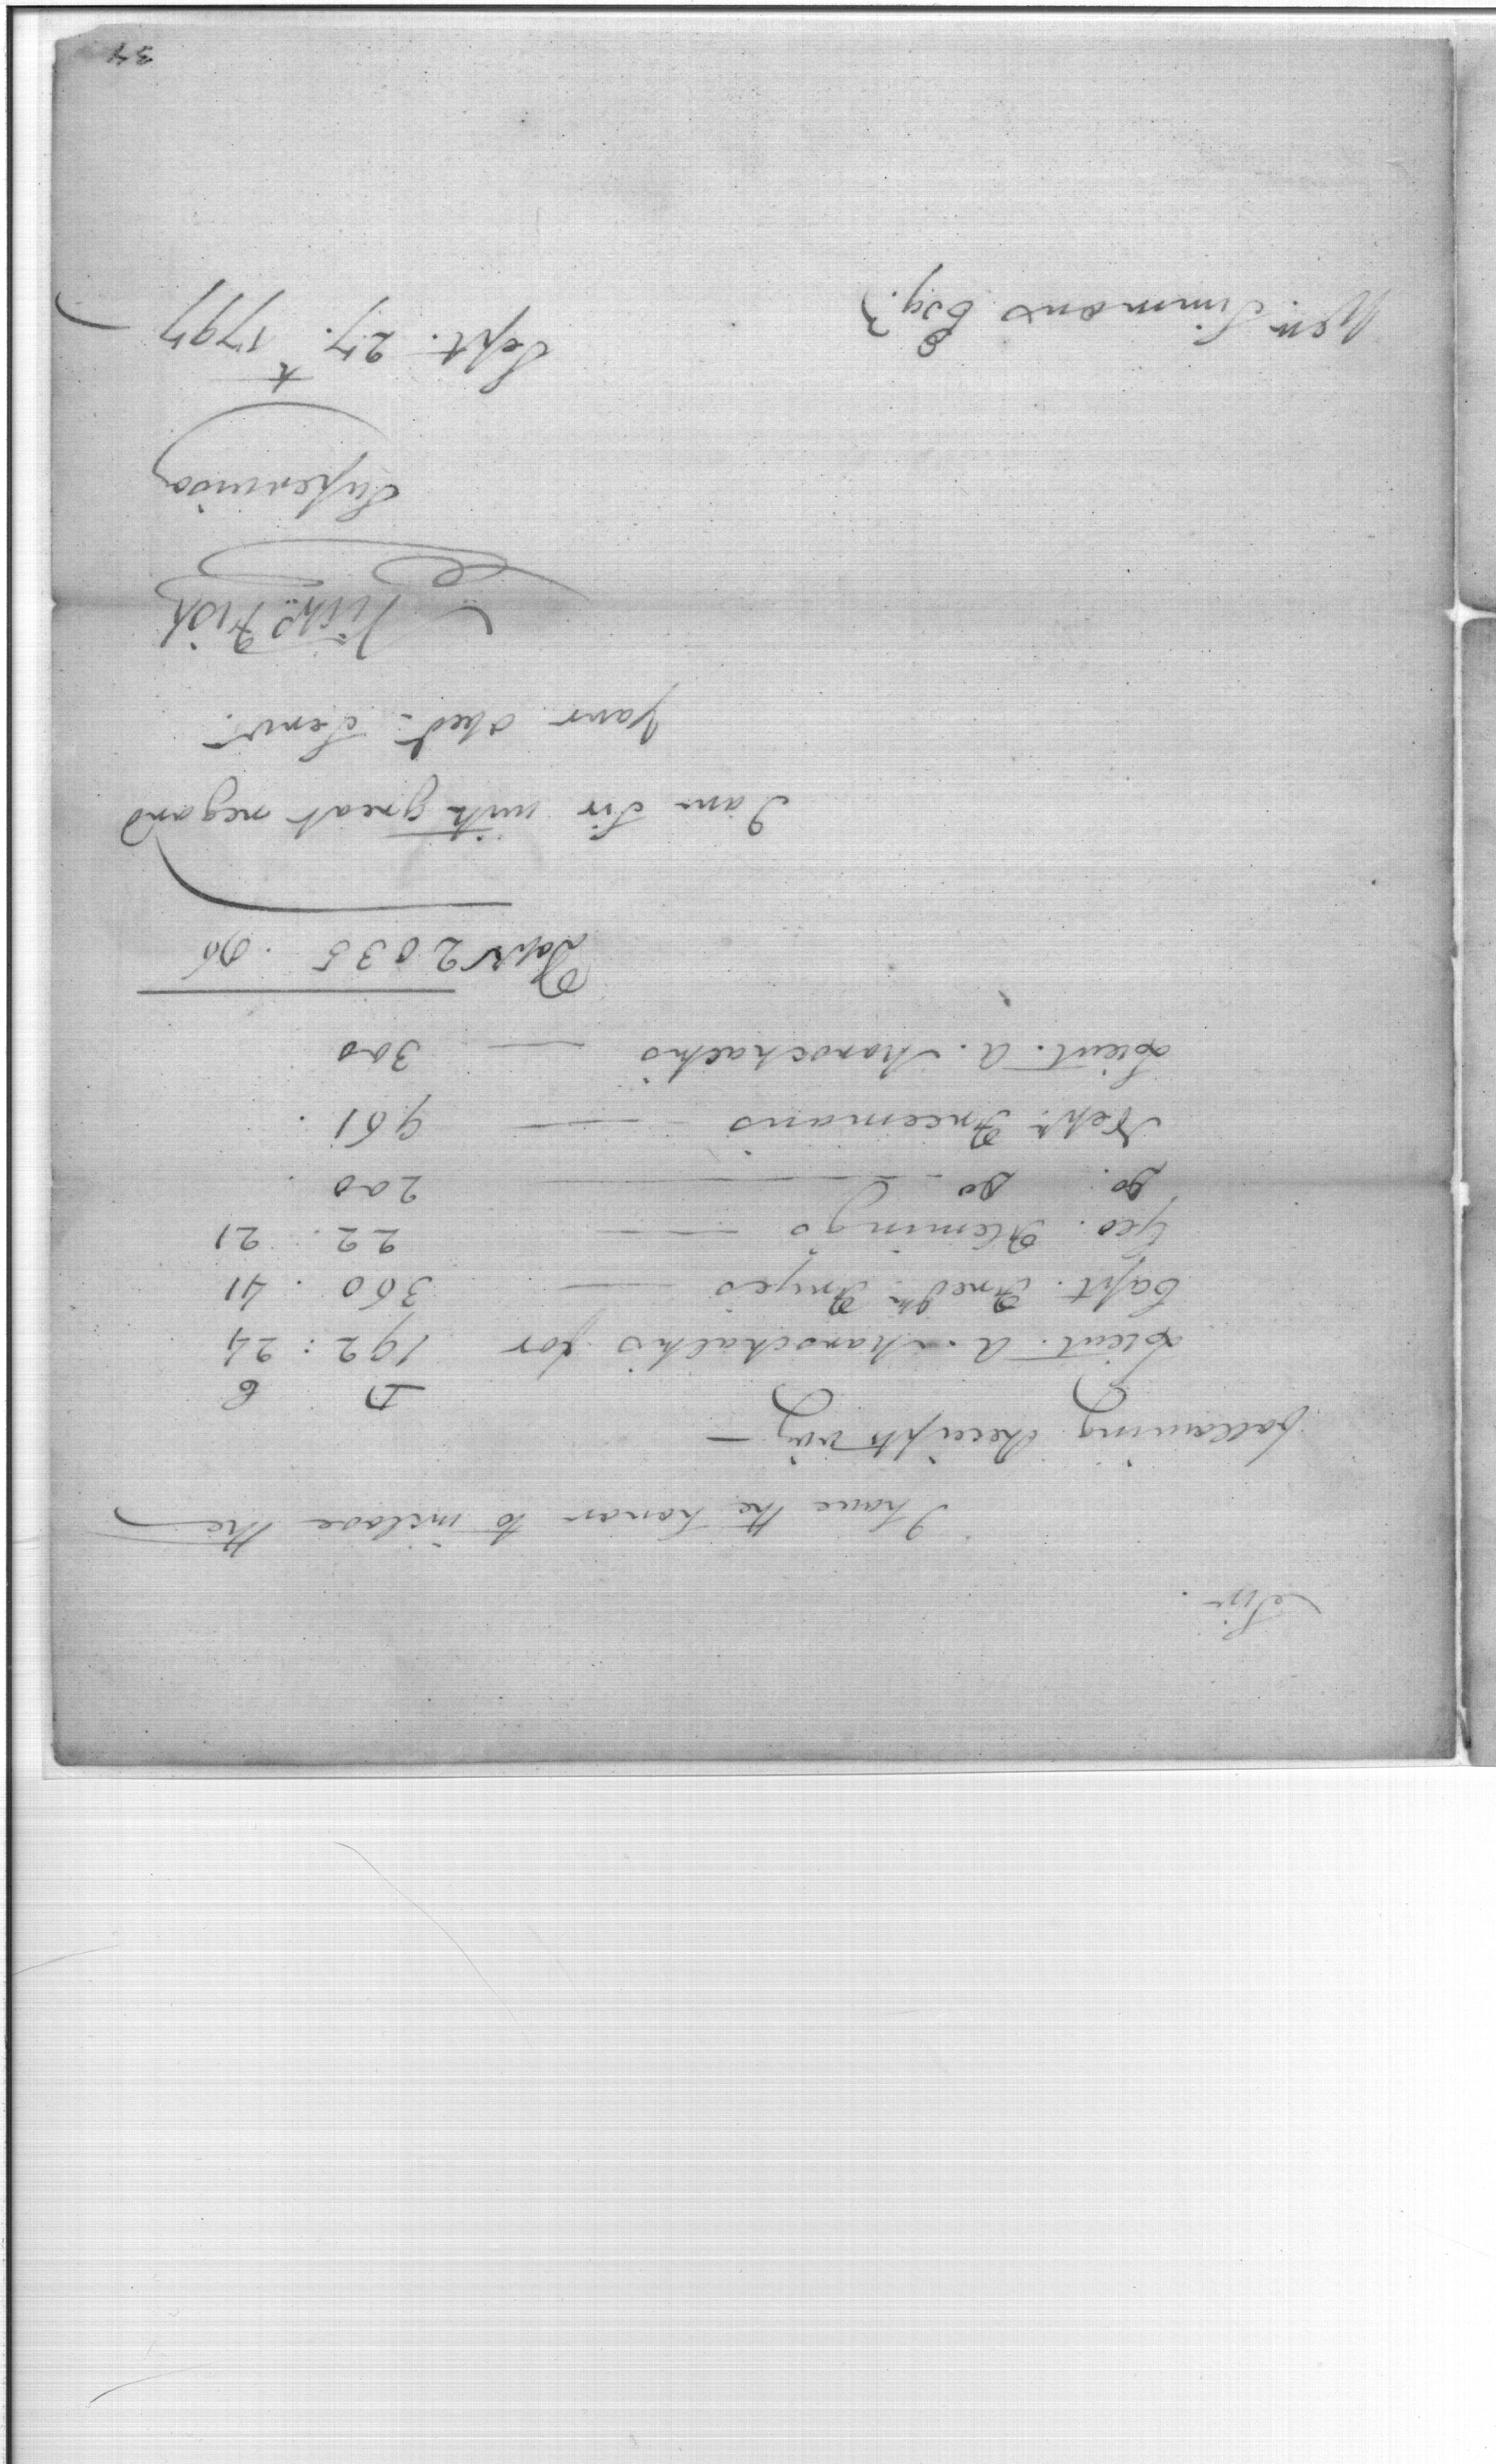 Sir.
I have the honor to inclose the
following Receipts viz —
D C
Lieut. A. Marschalk's for 192 : 24
Capt. Fred.k Frye's — 360 . 41
Geo. Fleming's — — 22 . 21
Do. Do — — — 200 .
Neh.h Freeman's — — 961 .
Lieut. A. Marschalk's — 300
Doll.rs 2035 . 86
I am Sir with great regard
Your obed.t Serv.t
Nich.s Fish
Supervisor
Sept. 27. 1797
Wm Simmons Esq.r
34